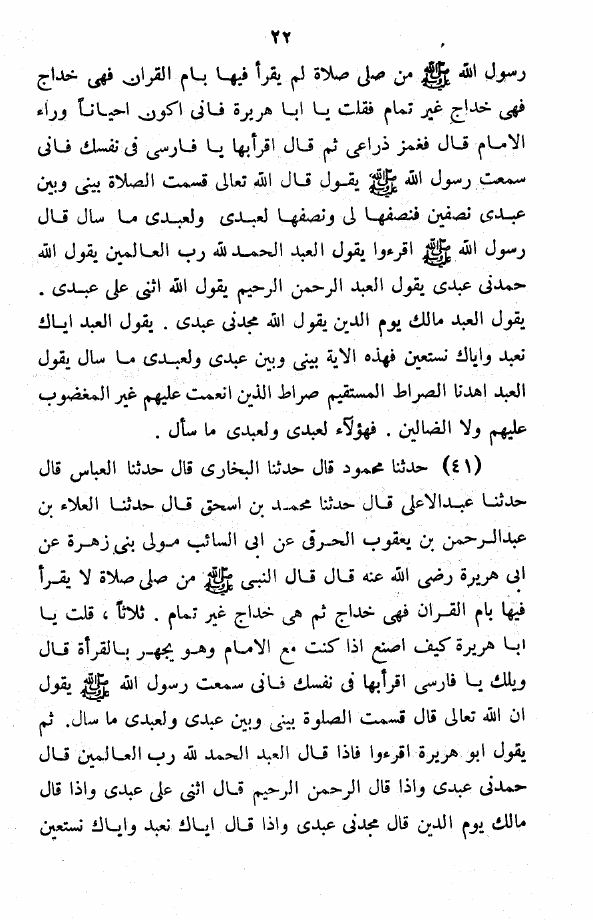 ٢٢
رسول الله ﷺ من صلى صلاة لم يقرأ فيها بام القران فهى خداج
فهى خداج غير تمام فقلت يا ابا هريرة فانى اكون احياناً وراء
الامام قال فغمز ذراعى ثم قال اقرأبها يا فارسى فى نفسك فانى
سمعت رسول الله ﷺ يقول قال الله تعالى قسمت الصلاة بينى وبين
عبدى نصفين فنصفها لى ونصفها لعبدى ولعبدى ما سال قال
رسول الله ﷺ اقرءوا يقول العبد الحمد لله رب العالمين يقول الله
حمدنى عبدى يقول العبد الرحمن الرحيم يقول الله اثنى على عبدى .
يقول العبد مالك يوم الدين يقول الله مجدنى عبدى . يقول العبد اياك
نعبد واياك نستعين فهذه الاية بينى وبين عبدى ولعبدى ما سال يقول
العبد اهدنا الصراط المستقيم صراط الذين انعمت عليهم غير المغضوب
عليهم ولا الضالين . فهؤلآء لعبدى ولعبدى ما سأل .
(٤١) حدثنا محمود قال حدثنا البخارى قال حدثنا العباس قال
حدثنا عبدالاعلى قال حدثنا محمد بن اسحق قال حدثنا العلاء بن
عبدالرحمن بن يعقوب الحرقى عن ابى السائب مولى بنى زهرة عن
ابى هريرة رضى الله عنه قال قال النبى ﷺ من صلى صلاة لا يقرأ
فيها بام القران فهى خداج ثم هى خداج غير تمام . ثلاثاً ، قلت يا
ابا هريرة كيف اصنع اذا كنت مع الامام وهو يجهر بالقرأة قال
ويلك يا فارسى اقرأبها فى نفسك فانى سمعت رسول الله ﷺ يقول
ان الله تعالى قال قسمت الصلوة بينى وبين عبدى ولعبدى ما سال. ثم
يقول ابو هريرة اقرءوا فاذا قال العبد الحمد لله رب العالمين قال
حمدنى عبدى واذا قال الرحمن الرحيم قال اثنى على عبدى واذا قال
مالك يوم الدين قال مجدنى عبدى واذا قال اياك نعبد واياك نستعين